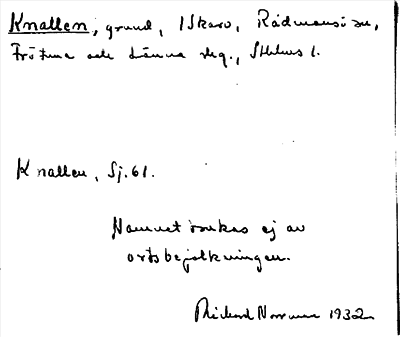 Knallen, grund, I Skarv, Rådmansö sn,
Frötuna och Länna skg., Sthlms l.
Knallen, Sj. 61.
Namnet önskas ej av
ortsbefolkningen.
Rickard Norrman 1932